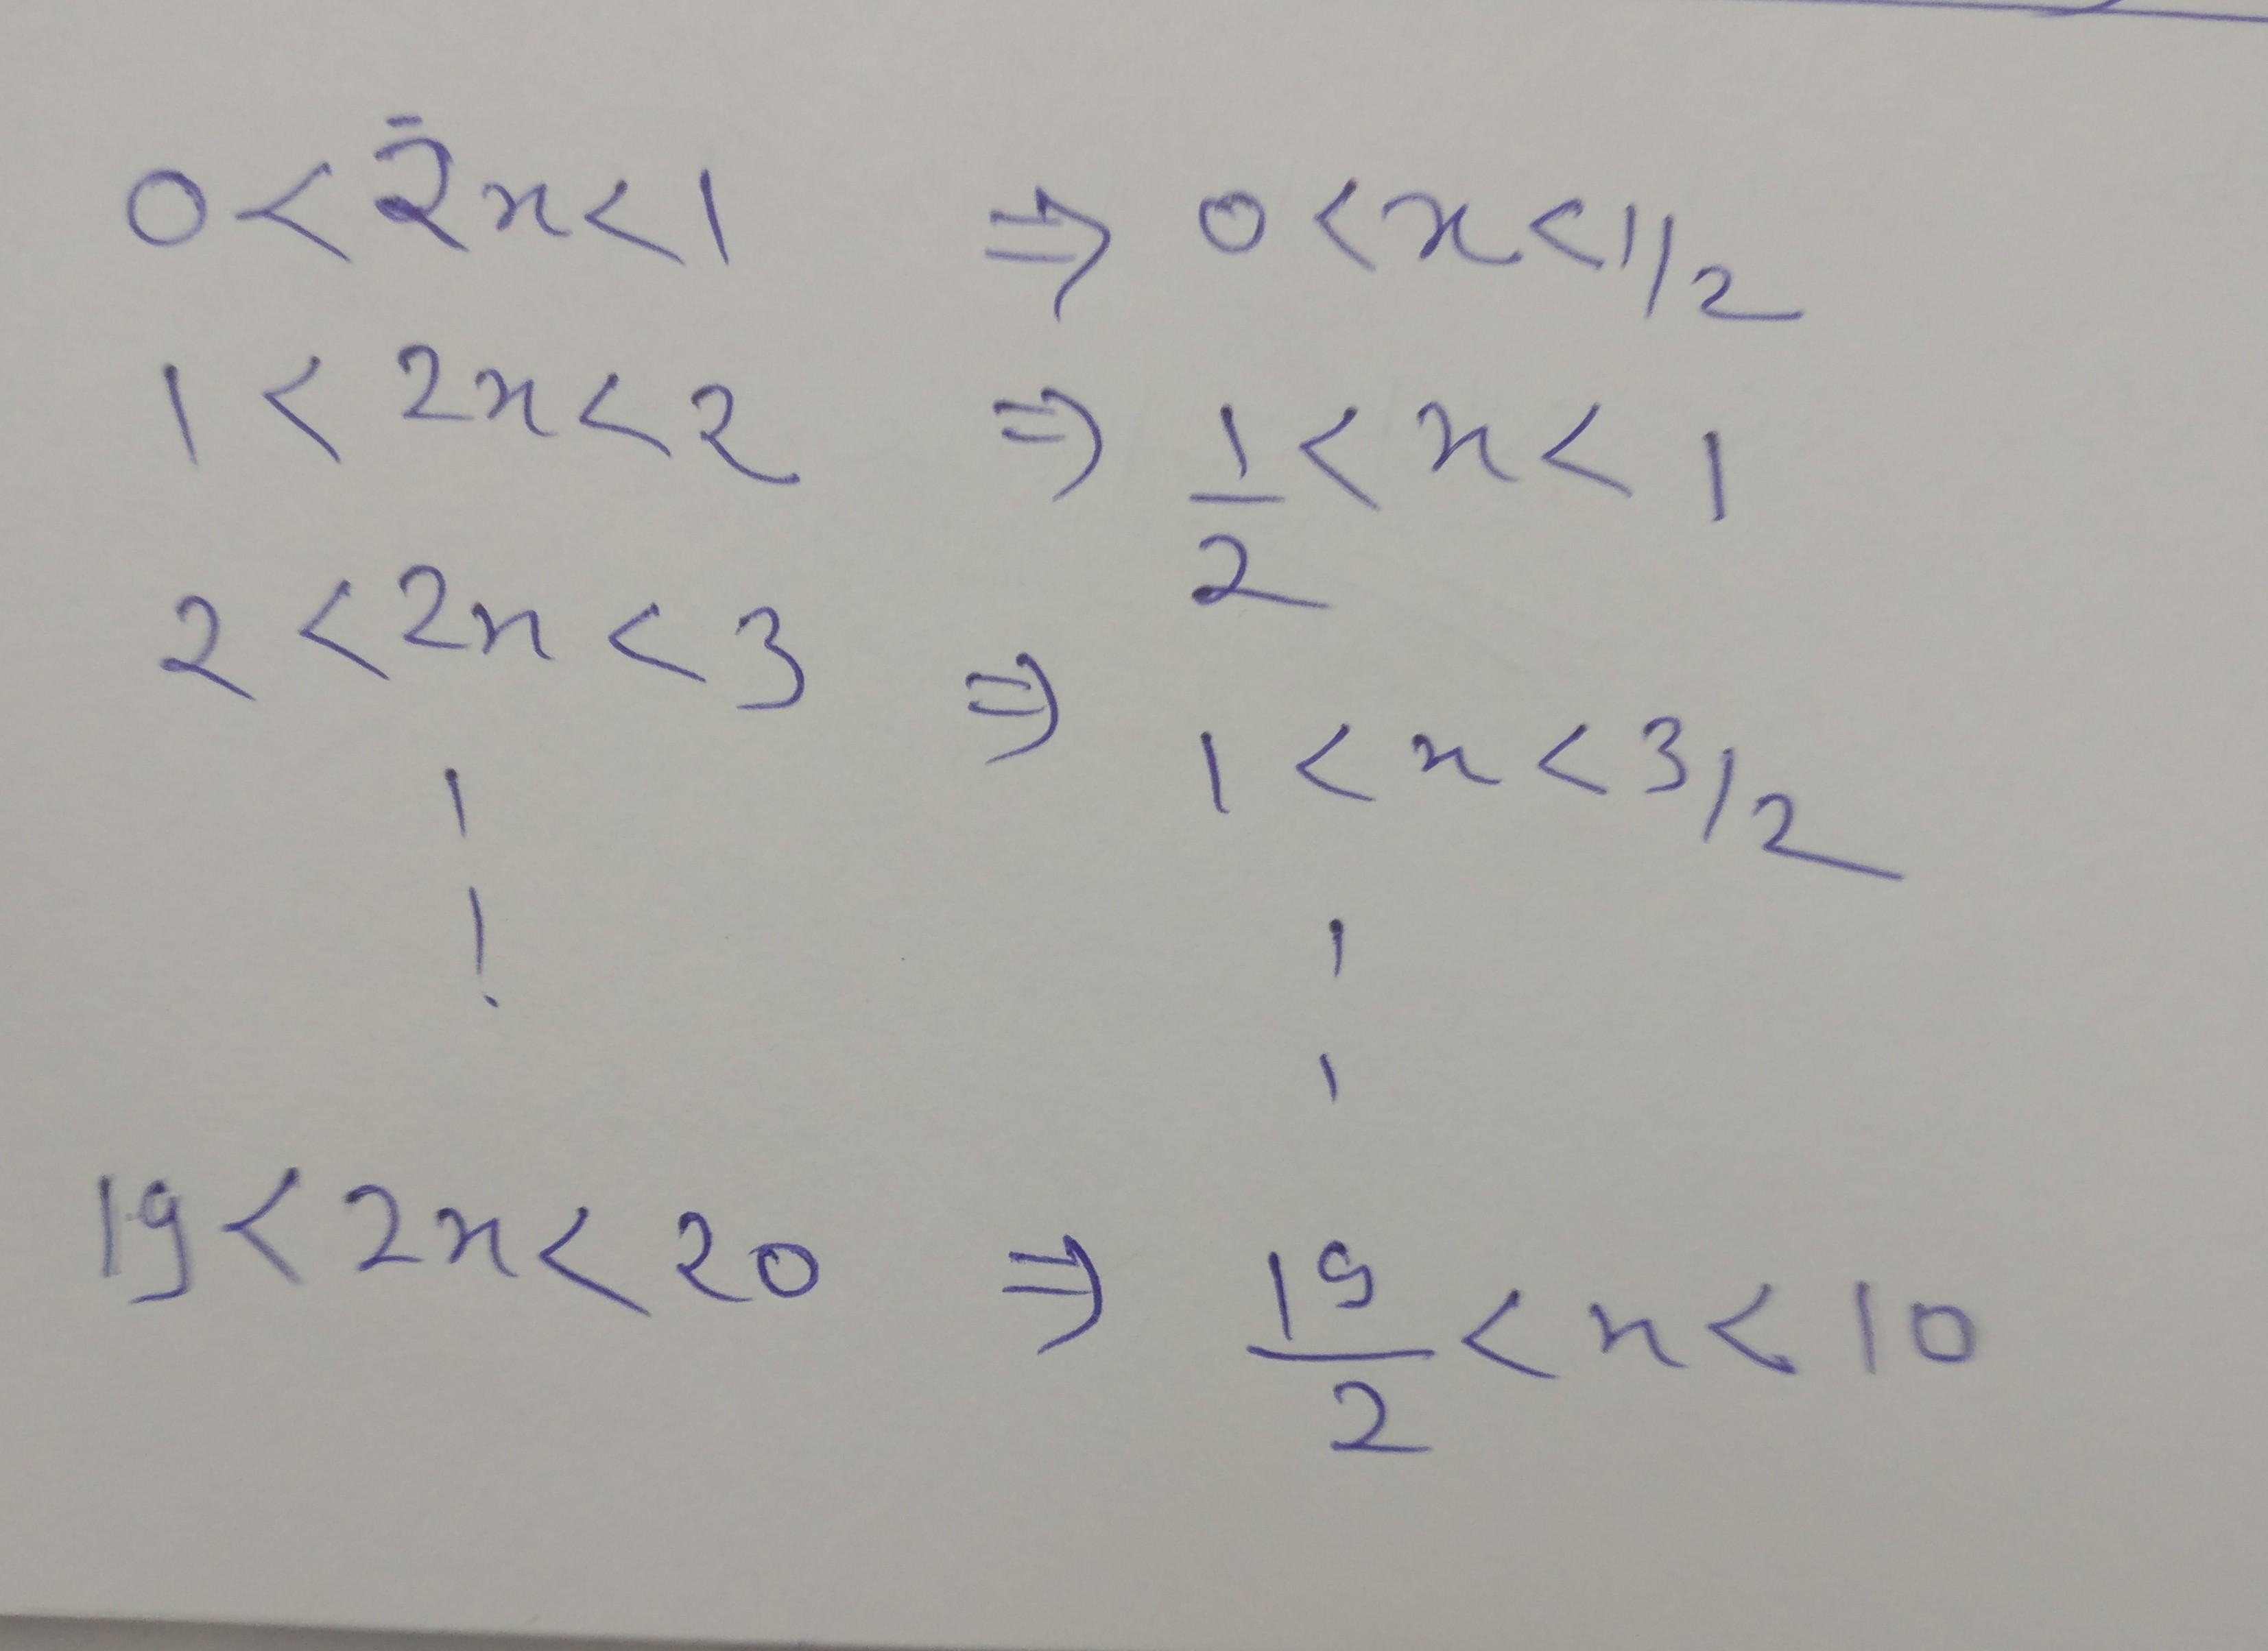 0 < 2x < 1 ⇒ 0 < x < 1/2
1 < 2x < 2 ⇒ 1/2 < x < 1
2 < 2x < 3 ⇒ 1 < x < 3/2
19 < 2x < 20 ⇒ 19/2 < x < 10